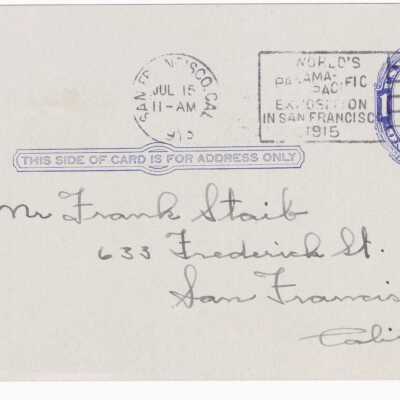 SAN FRANCISCO, CAL.
JUL 15
11-AM
1915
WORLD'S
PANAMA-PACIFIC
EXPOSITION
IN SAN FRANCISCO
1915
THIS SIDE OF CARD IS FOR ADDRESS ONLY
Mr Frank Staib
633 Frederick St.
San Francis
Cali